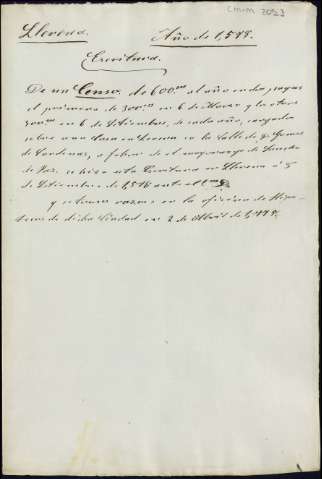 CMM 2053
Llerena. Año de 1,578.
Escritura.
De un Censo de 600 mrs al año en dos pagas
el primero de 300 mrs en 6 de Marzo y los otros
300 mrs en 6 de Setiembre, de cada año, cargado
sobre una Casa en Llerena en la Calle de Gomez
de Cardenas, a favor de el mayorazgo de
de Paz, se hizo esta Escritura en Llerena á 5
de Setiembre de 1,578 ante el
y se tomó razon en la oficina de Hipo
tecas de dicha Ciudad en 2 de Abril de